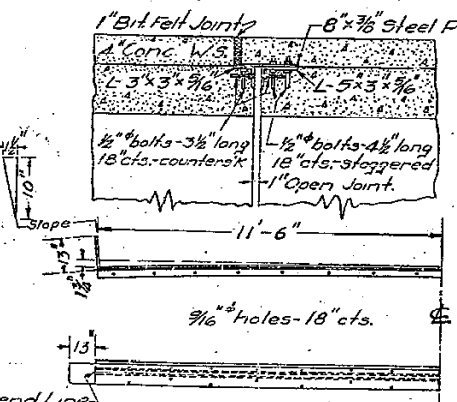 1" Bit. Felt Joint
8" x 3/8" Steel P
4" Conc. W.S.
L-3" x 3" x 5/16"
L-5" x 3" x 5/16"
1/2"ϕ bolts-3 1/2" long
18" cts.-countersk
1/2"ϕ bolts-4 1/2" long
18" cts.-staggered
1" Open Joint.
10"
Slope
11'-6"
13"
9/16"ϕ holes-18" cts.
℄
13"
end Line